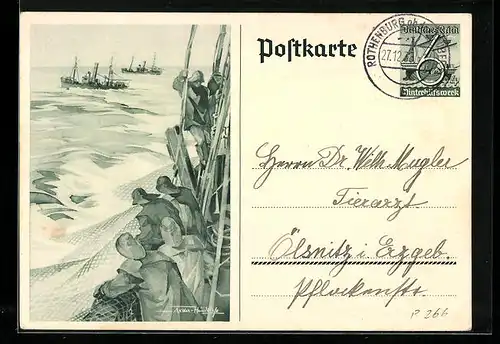 Postkarte
ROTHENBURG
27.12.
Deutsches Reich
6
Winterhilfswerk
Herrn Dr. Wilh. Mugler
Tierarzt
Ölsnitz i. Erzgeb.
Pflockenstr.
P 266